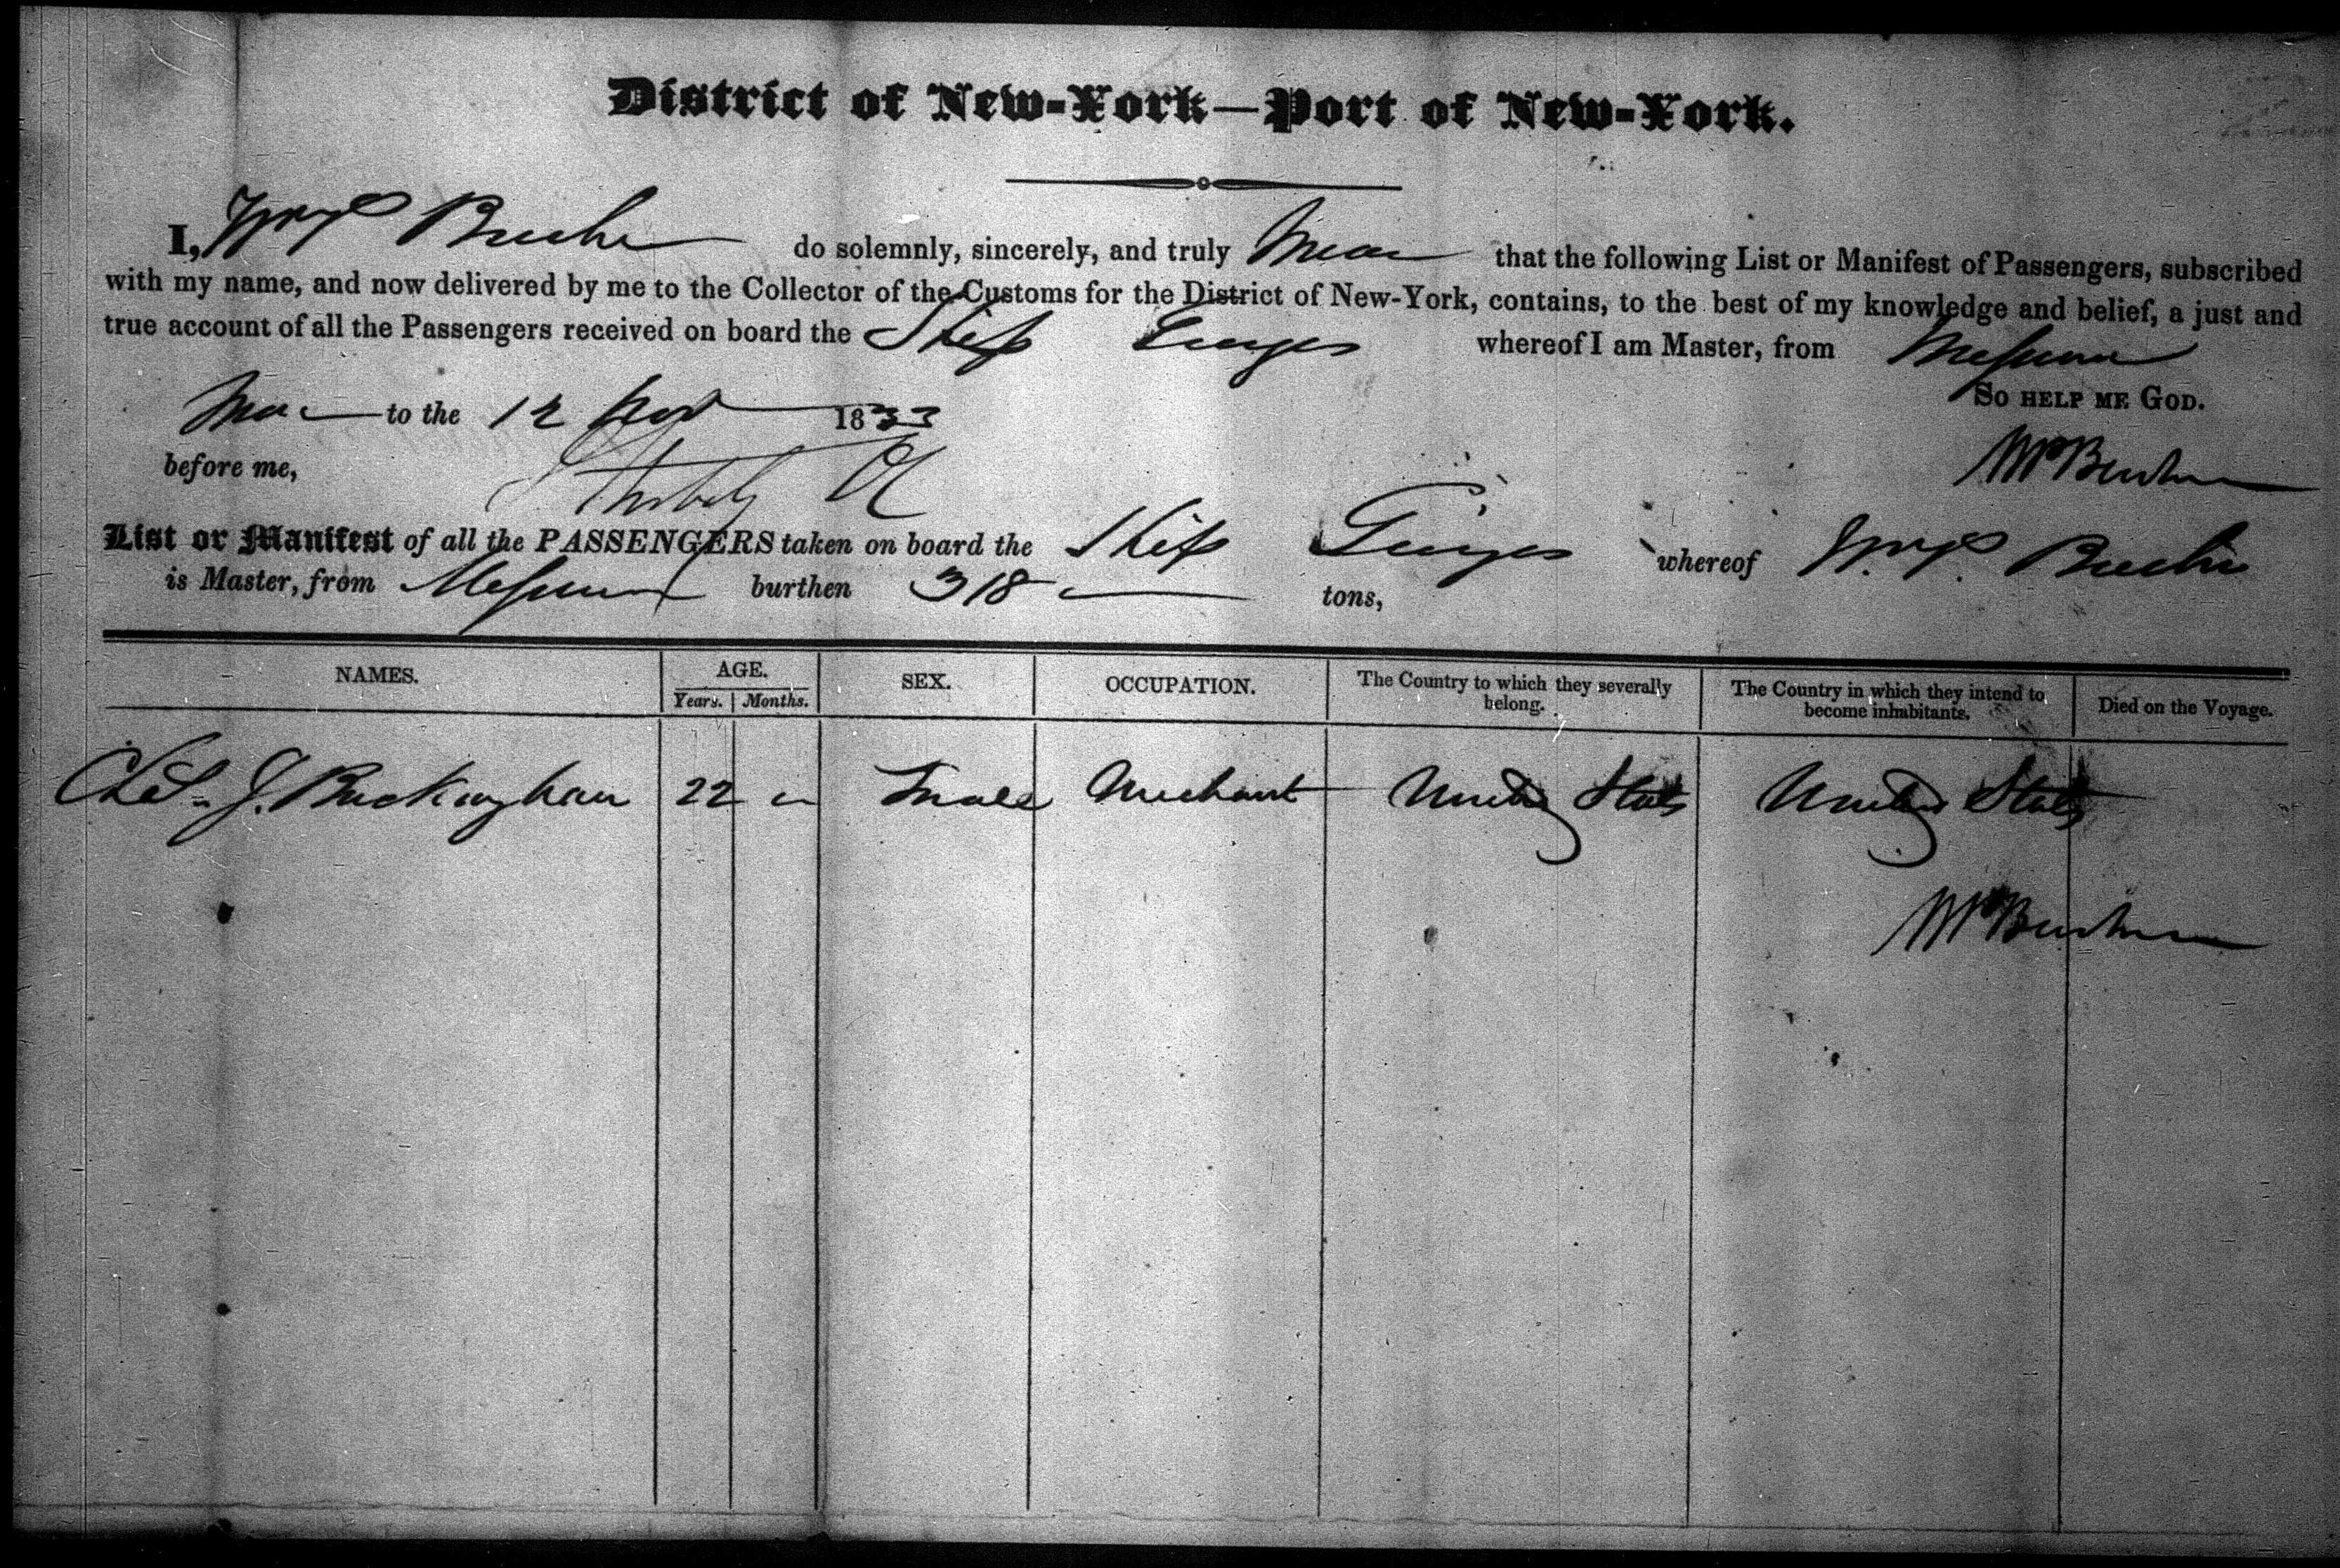 District of New-York—Port of New-York.
I, do solemnly, sincerely, and truly Swear that the following List or Manifest of Passengers, subscribed
with my name, and now delivered by me to the Collector of the Customs for the District of New-York, contains, to the best of my knowledge and belief, a just and
true account of all the Passengers received on board the Ship whereof I am Master, from Messina
So help me God.
Swor to the 12 Nov 1833
before me,
List or Manifest of all the PASSENGERS taken on board the Ship whereof
is Master, from Messina burthen 318 tons,
NAMES. AGE. SEX. OCCUPATION. The Country to which they severally belong. The Country in which they intend to become inhabitants. Died on the Voyage.
Years. Months.
Chs. J. Buckingham 22 " Male Merchant United States United States